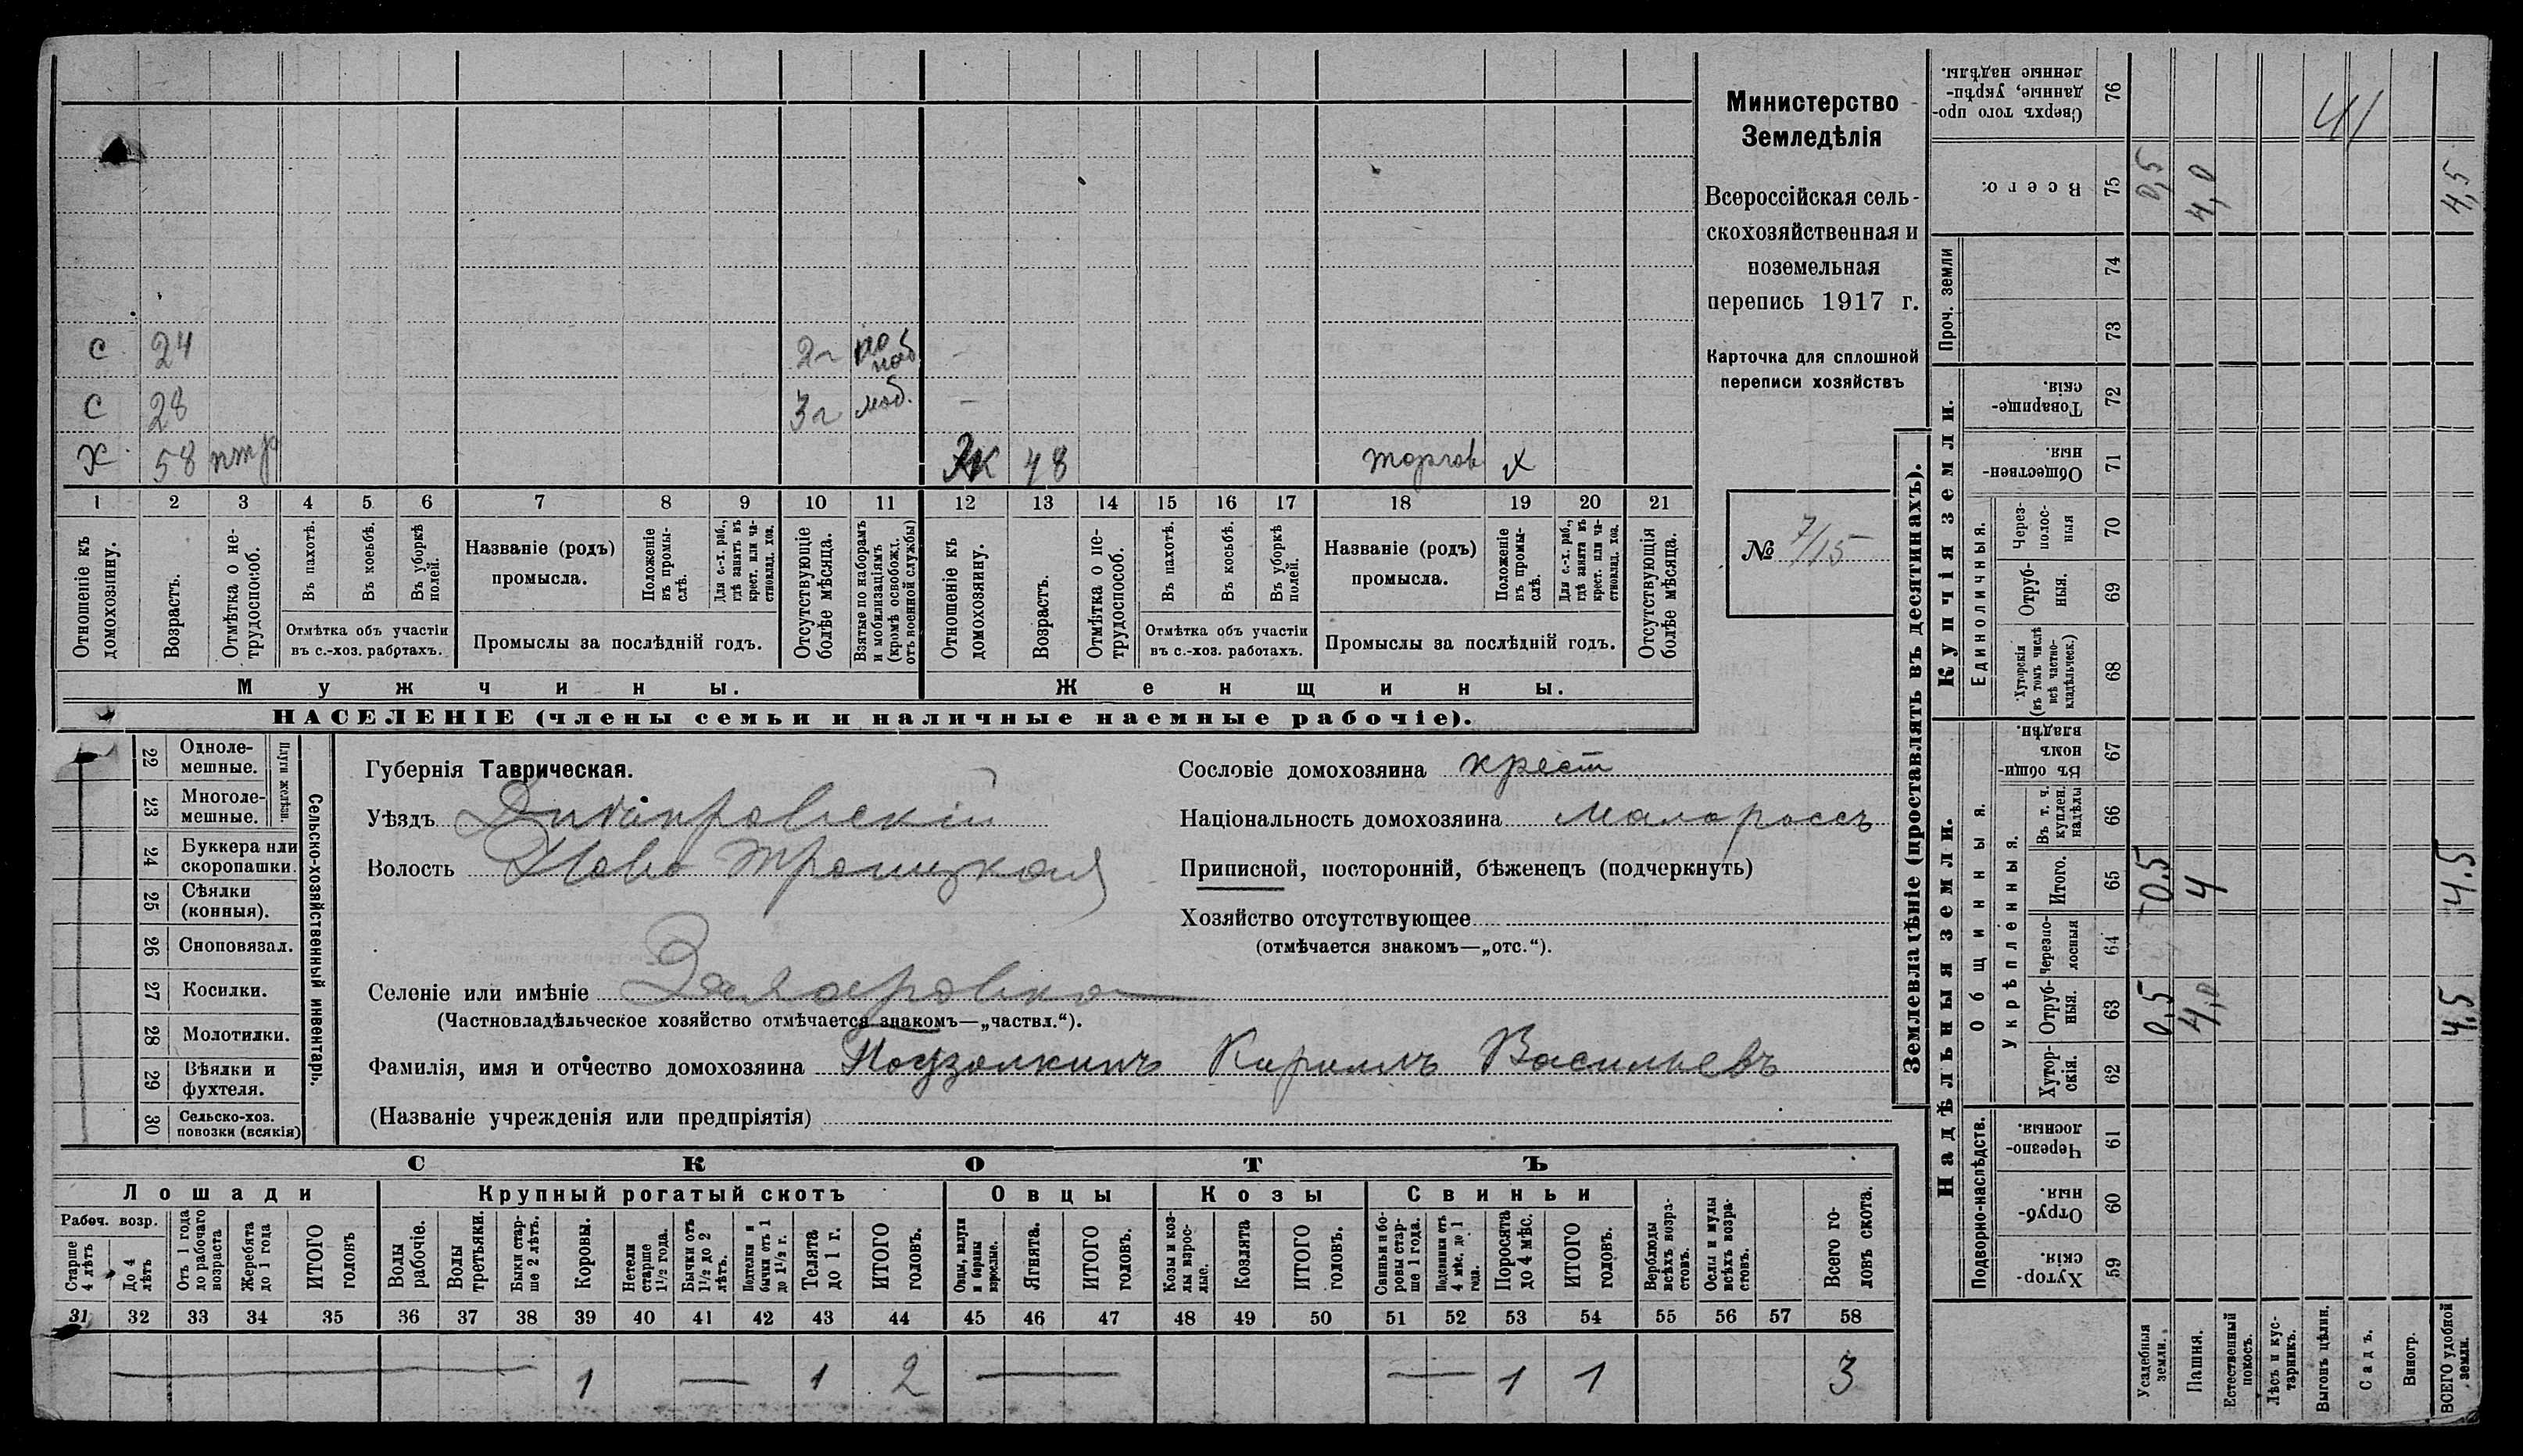 с 24 2г по моб
с 28 3г моб. —
х 58 ЖК 48 торгов х
1 2 3 4 5 6 7 8 9 10 11 12 13 14 15 16 17 18 19 20 21
Отношеніе къ домохозяину.
Возрастъ.
Отмѣтка о не-трудоспособ.
Въ пахотѣ.
Въ косьбѣ.
Въ уборкѣ полей.
Отмѣтка объ участіи
въ с.-хоз. работахъ.
Названіе (родъ)
промысла.
Положеніе въ промы-слѣ.
Для с.-х. раб., гдѣ занятъ въ крест. или ча-стновлад. хоз.
Промыслы за послѣдній годъ.
Отсутствующіе болѣе мѣсяца.
Взятые по наборамъ и мобилизаціямъ (кромѣ освобожд. отъ военной службы)
Отношеніе къ домохозяину.
Возрастъ.
Отмѣтка о не-трудоспособ.
Въ пахотѣ.
Въ косьбѣ.
Въ уборкѣ полей.
Отмѣтка объ участіи
въ с.-хоз. работахъ.
Названіе (родъ)
промысла.
Положеніе въ промы-слѣ.
Для с.-х. раб., гдѣ занята въ крест. или ча-стновлад. хоз.
Промыслы за послѣдній годъ.
Отсутствующія болѣе мѣсяца.
Мужчины. Женщины.
НАСЕЛЕНІЕ (члены семьи и наличные наемные рабочіе).
Министерство
Земледѣлія
Всероссійская сель-
скохозяйственная и
поземельная
перепись 1917 г.
Карточка для сплошной
переписи хозяйствъ
№ 7/15
Сельско-хозяйственный инвентарь.
Плуги желѣзн.
22 Одноле-
мешные.
23 Многоле-
мешные.
24 Буккера или
скоропашки.
25 Сѣялки
(конныя).
26 Сноповязал.
27 Косилки.
28 Молотилки.
29 Вѣялки и
фухтеля.
30 Сельско-хоз.
повозки (всякія)
Губернія Таврическая.
Уѣздъ Днѣпровскій
Волость Ново Троицкая
Селеніе или имѣніе
(Частновладѣльческое хозяйство отмѣчается знакомъ—„частвл.“).
Фамилія, имя и отчество домохозяина Подзолкинъ Кириллъ Васильевъ
(Названіе учрежденія или предпріятія)
Сословіе домохозяина крест
Національность домохозяина малороссъ
Приписной, посторонній, бѣженецъ (подчеркнуть)
Хозяйство отсутствующее
(отмѣчается знакомъ—„отс.“).
СКОТЪ
Лошади Крупный рогатый скотъ Овцы Козы Свиньи
Рабоч. возр.
Старше 4 лѣтъ
До 4 лѣтъ
Отъ 1 года до рабочаго возраста
Жеребята до 1 года
ИТОГО головъ
Волы рабочіе.
Волы третьяки.
Быки стар-ше 2 лѣтъ.
Коровы.
Нетели старше 1½ года.
Бычки отъ 1½ до 2 лѣтъ.
Подтелки и бычки отъ 1 до 1½ г.
Телята до 1 г.
ИТОГО головъ.
Овцы, валухи и бараны взрослые.
Ягнята.
ИТОГО головъ.
Козы и коз-лы взрос-лые.
Козлята
ИТОГО головъ.
Свиньи и бо-ровы стар-ше 1 года.
Подсвинки отъ 4 мѣс. до 1 года.
Поросята до 4 мѣс.
ИТОГО головъ.
Верблюды всѣхъ возра-стовъ.
Ослы и мулы всѣхъ возра-стовъ.
Всего го-ловъ скота.
31 32 33 34 35 36 37 38 39 40 41 42 43 44 45 46 47 48 49 50 51 52 53 54 55 56 57 58
— 1 — 1 2 — — 1 1 3
Землевладѣніе (проставлять въ десятинахъ).
Надѣльныя земли. Купчія земли. Проч. земли
Подворно-наслѣдств.
Общинныя.
Укрѣпленныя.
Единоличныя.
Хутор-скія. 59
Отруб-ныя. 60
Черезпо-лосныя. 61
Хутор-скія. 62
Отруб-ныя. 63 0,5 4,0 4,5
Черезпо-лосныя 64
Итого. 65 0,5 4 4.5
Въ т. ч. куплен. надѣлы 66
Въ общи-номъ владѣн. 67
Хуторскія (въ томъ числѣ всѣ частно-владѣльческ.) 68
Отруб-ныя. 69
Через-полос-ныя 70
Обществен-ныя. 71
Товарище-скія. 72
73
74
Всего: 75 0,5 4,0 4,5
Сверхъ того про-данные, укрѣп-ленные надѣлы. 76
41
Усадебныя земли.
Пашня.
Естественный покосъ.
Лѣсъ и кус-тарникъ.
Выгонъ цѣлин.
Садъ.
Виногр.
ВСЕГО удобной земли.